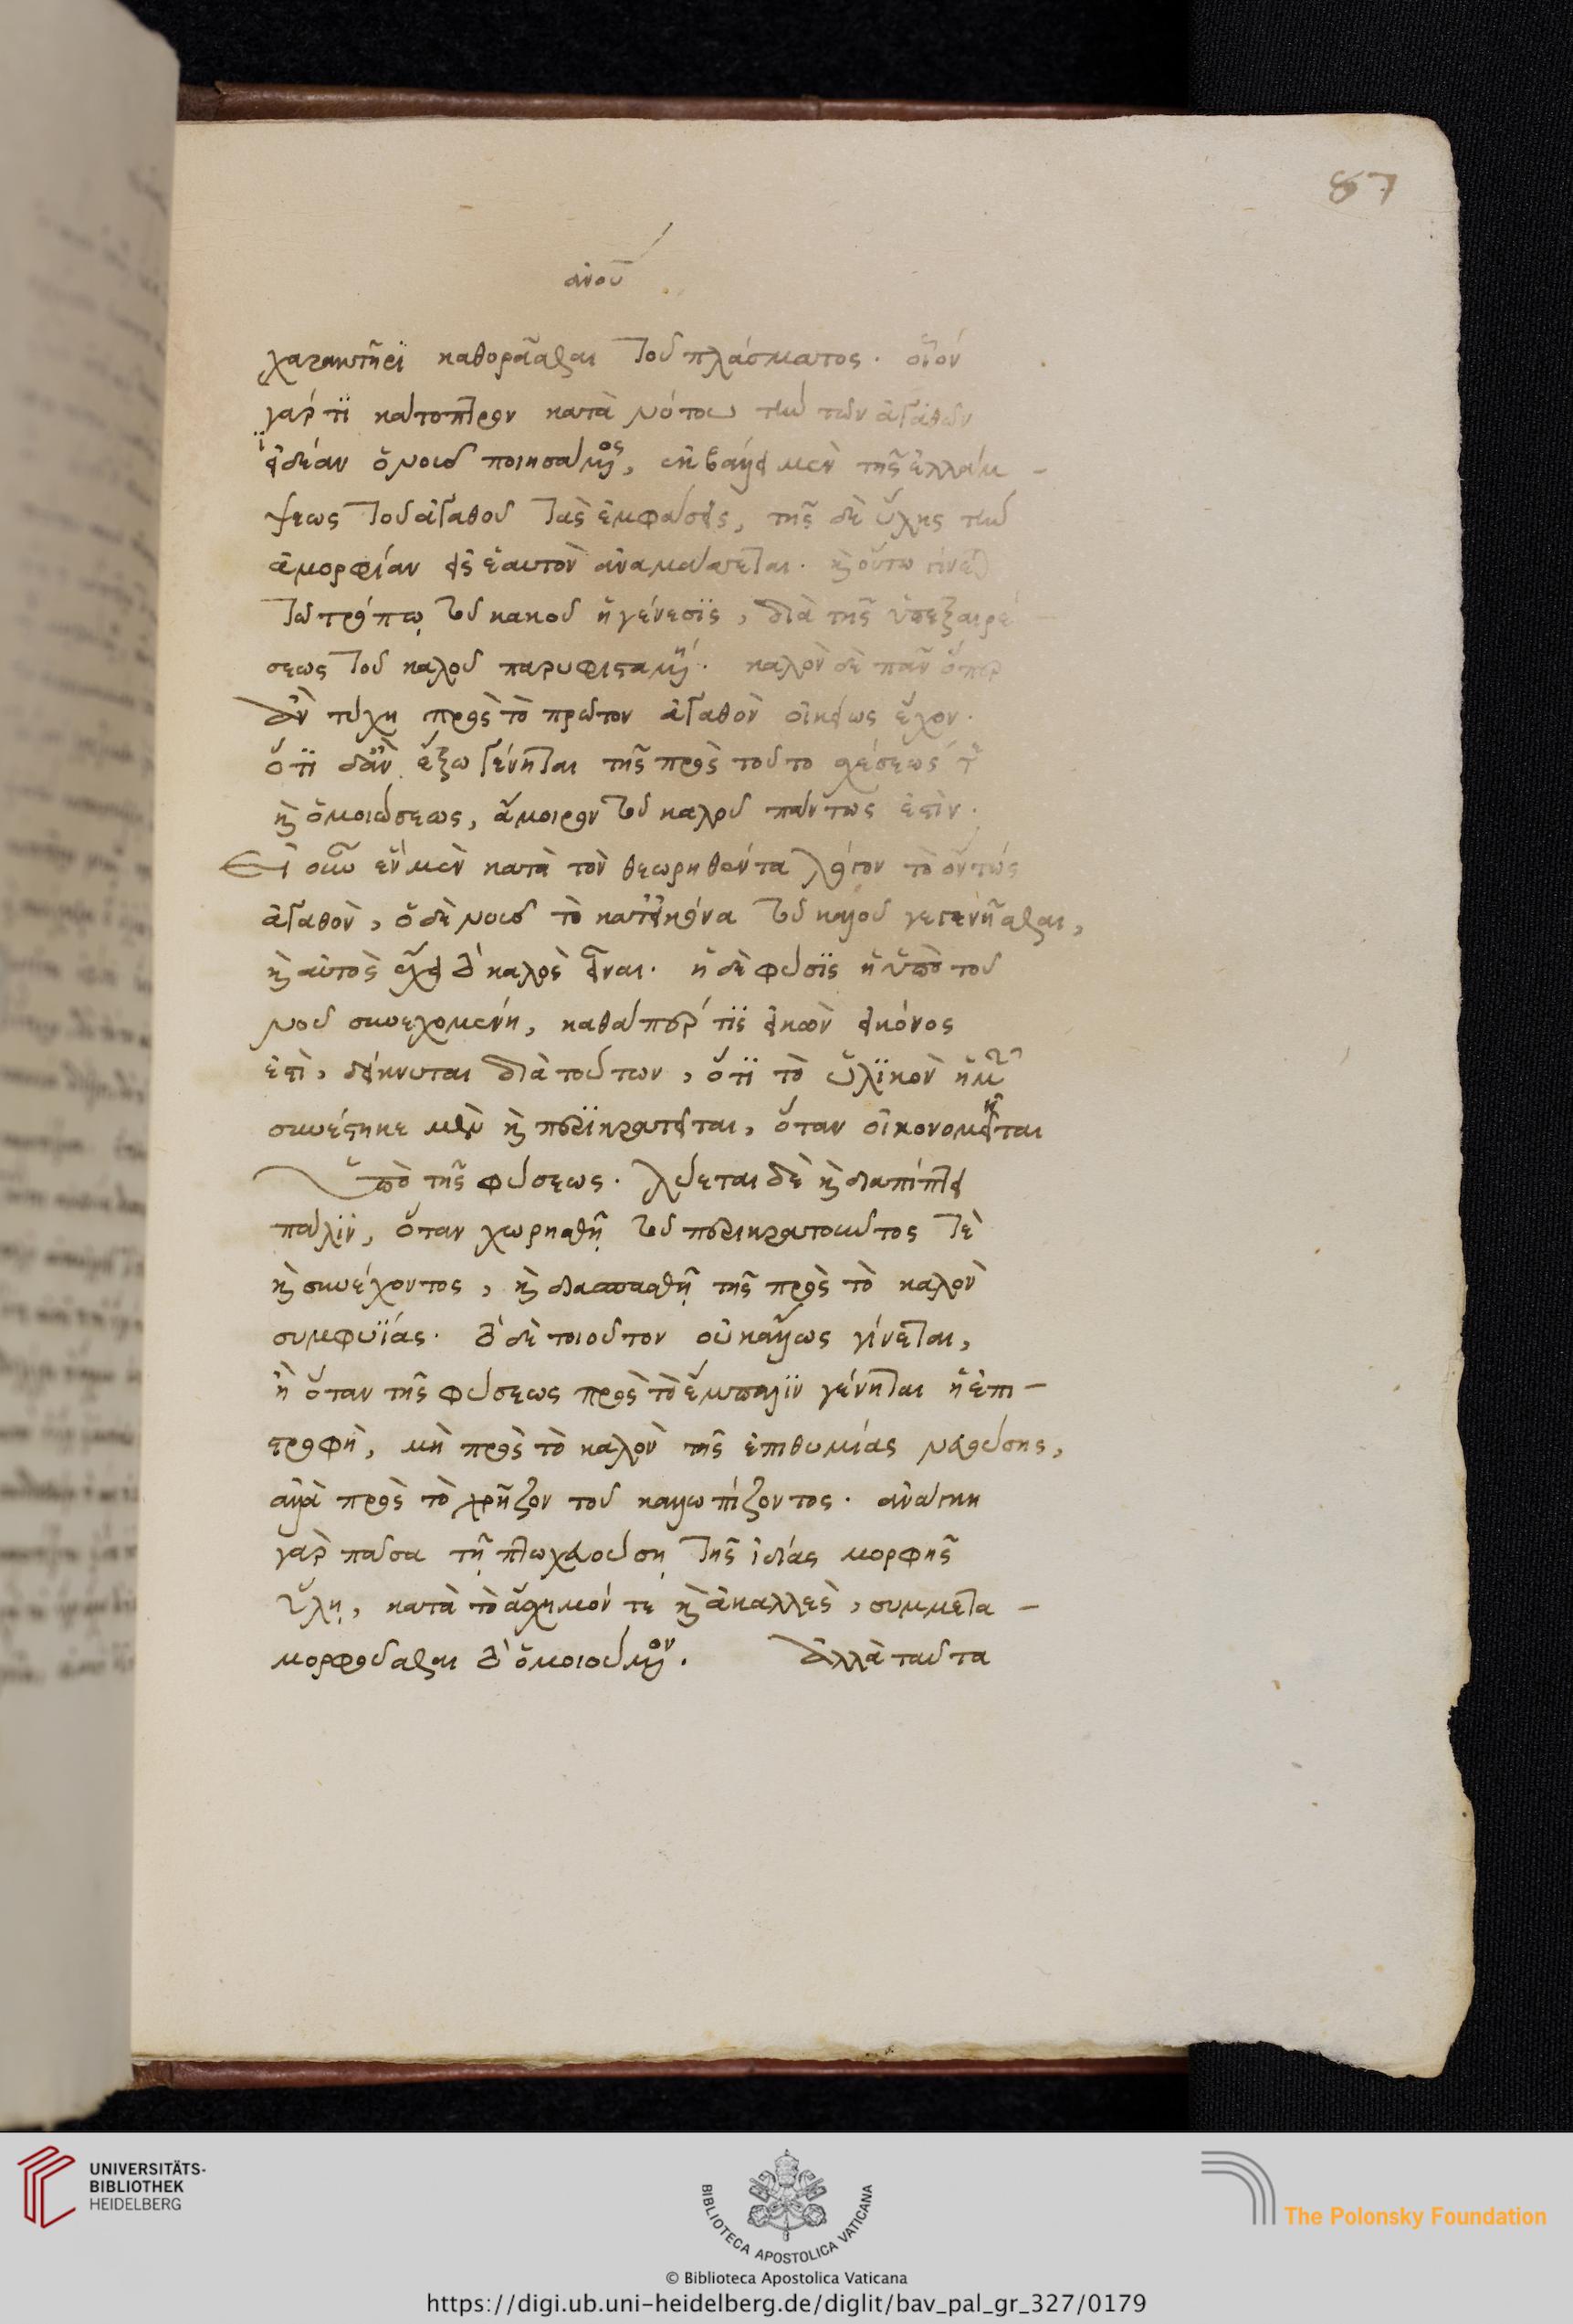 ἀνοῦ
χαρακτῆρϊ καθορᾶσθαι τοῦ πλάσματος. οἷόν
γάρ τϊ κάτοπτρον κατὰ νότου τὴν τῶν ἀγαθῶν
ἰδέαν ὁ νοῦς ποιησάμενος, ἐκβάλλει μὲν τῆς ἐλλάμ-
ψεως τοῦ ἀγαθοῦ τὰς ἐμφάσεις, τῆς δὲ ὕλης τὴν
ἀμορφίαν εἰς ἑαυτὸν ἀναμάσσεται. καὶ οὕτω γίνεται
τῶ τρόπῳ τοῦ κακοῦ ἡ γένεσϊς, διὰ τῆς ὑπεξαιρέ-
σεως τοῦ καλοῦ παρυφισταμένη. καλὸν δὲ πᾶν ὅπερ
ἂν τύχη πρὸς τὸ πρῶτον ἀγαθὸν οἰκείως ἔχον.
ὅ τϊ δ' ἂν ἔξω γένηται τῆς πρὸς τοῦτο σχέσεώς τὲ
καὶ ὁμοιώσεως, ἄμοιρον τοῦ καλοῦ πάντως ἐστὶν.
Εἰ οὖν ἓν μὲν κατὰ τὸν θεωρηθέντα λόγον τὸ ὄντως
ἀγαθὸν, ὁ δὲ νοῦς τὸ κατεἰκόνα τοῦ καλοῦ γεγενῆσθαι,
καὶ αὐτὸς ἔχει τὸ καλὸς εἶναι. ἡ δὲ φύσϊς ἡ ὑπὸ τοῦ
νοῦ συνεχομένη, καθάπερ τϊς εἰκὼν εἰκόνος
ἐστὶ, δείκνυται διὰ τούτων, ὅτϊ τὸ ὑλϊκὸν ἡμῶν
συνέστηκε μὲν καὶ περϊκρατεῖται, ὅταν οἰκονομεῖται
ὑπὸ τῆς φύσεως. λύεται δὲ καὶ διαπίπτει
πάλϊν, ὅταν χωρησθῆ τοῦ περικρατοῦντος τὲ
καὶ συνέχοντος, καὶ διασπασθῆ τῆς πρὸς τὸ καλὸν
συμφυϊάς. τὸ δὲ τοιοῦτον οὐκ ἄλλως γίνεται,
ἢ ὅταν τῆς φύσεως πρὸς τὸ ἔμπαλϊν γένηται ἡ ἐπι-
στροφὴ, μὴ πρὸς τὸ καλὸν τῆς ἐπιθυμίας νευούσης,
ἀλλὰ πρὸς τὸ χρῆζον τοῦ καλλωπίζοντος. ἀνάγκη
γὰρ πᾶσα τῆ πτωχευούση τῆς ἰδίας μορφῆς
ὕλη, κατὰ τὸ ἄσχημόν τὲ καὶ ἀκαλλὲς, συμμετα-
μορφοῦσθαι τὸ ὁμοιούμενον. Ἀλλὰ ταῦτα
87
UNIVERSITÄTS-
BIBLIOTHEK
HEIDELBERG
BIBLIOTECA APOSTOLICA VATICANA
The Polonsky Foundation
© Biblioteca Apostolica Vaticana
https://digi.ub.uni-heidelberg.de/diglit/bav_pal_gr_327/0179